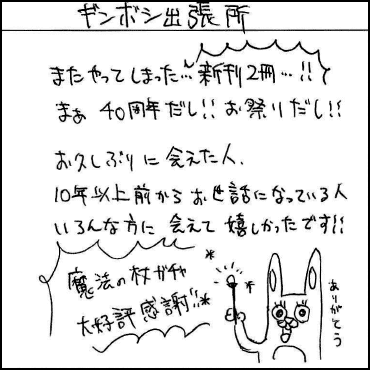 ギンボシ出張所
またやってしまった…新刊2冊…!!
まぁ 40周年だし!! お祭りだし!!
お久しぶりに会えた人、
10年以上前からお世話になっている人
いろんな方に会えて嬉しかったです!!
魔法の杖ガチャ
大好評感謝!!
ありがとう